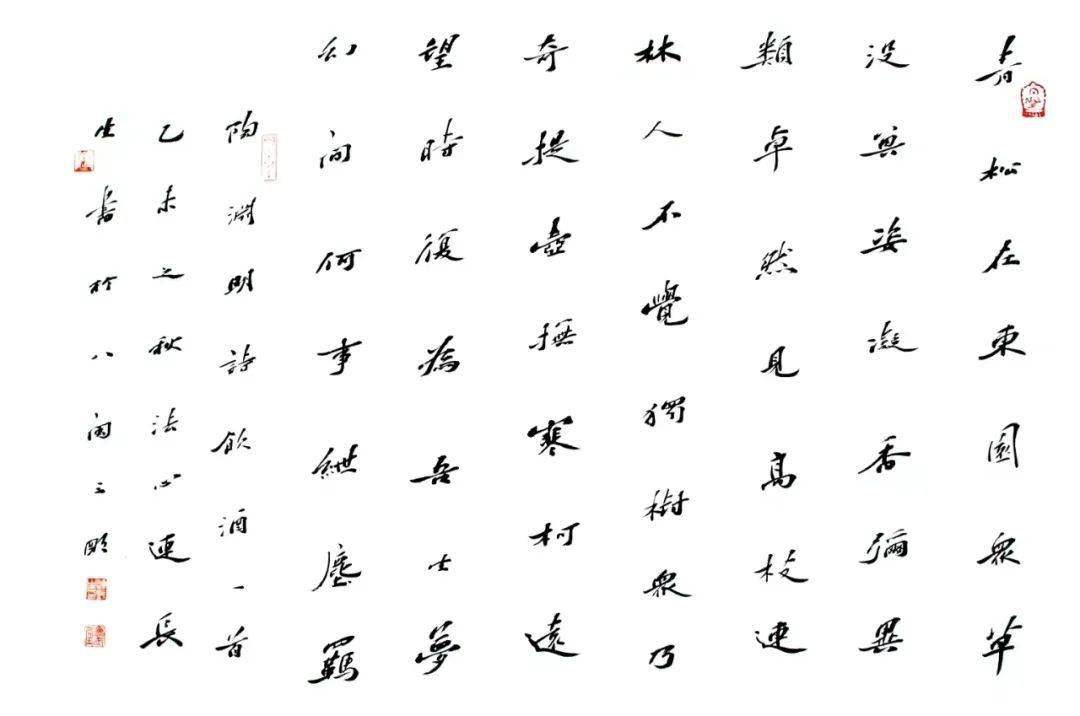 青松在東園衆草
没其姿凝香彌異
類卓然見高枝連
林人不覺獨樹衆乃
奇提壺撫寒柯遠
望時復為吾生夢
幻間何事紲塵羈
陶淵明詩飲酒一首
乙未之秋法心連長
生書於八閩三明